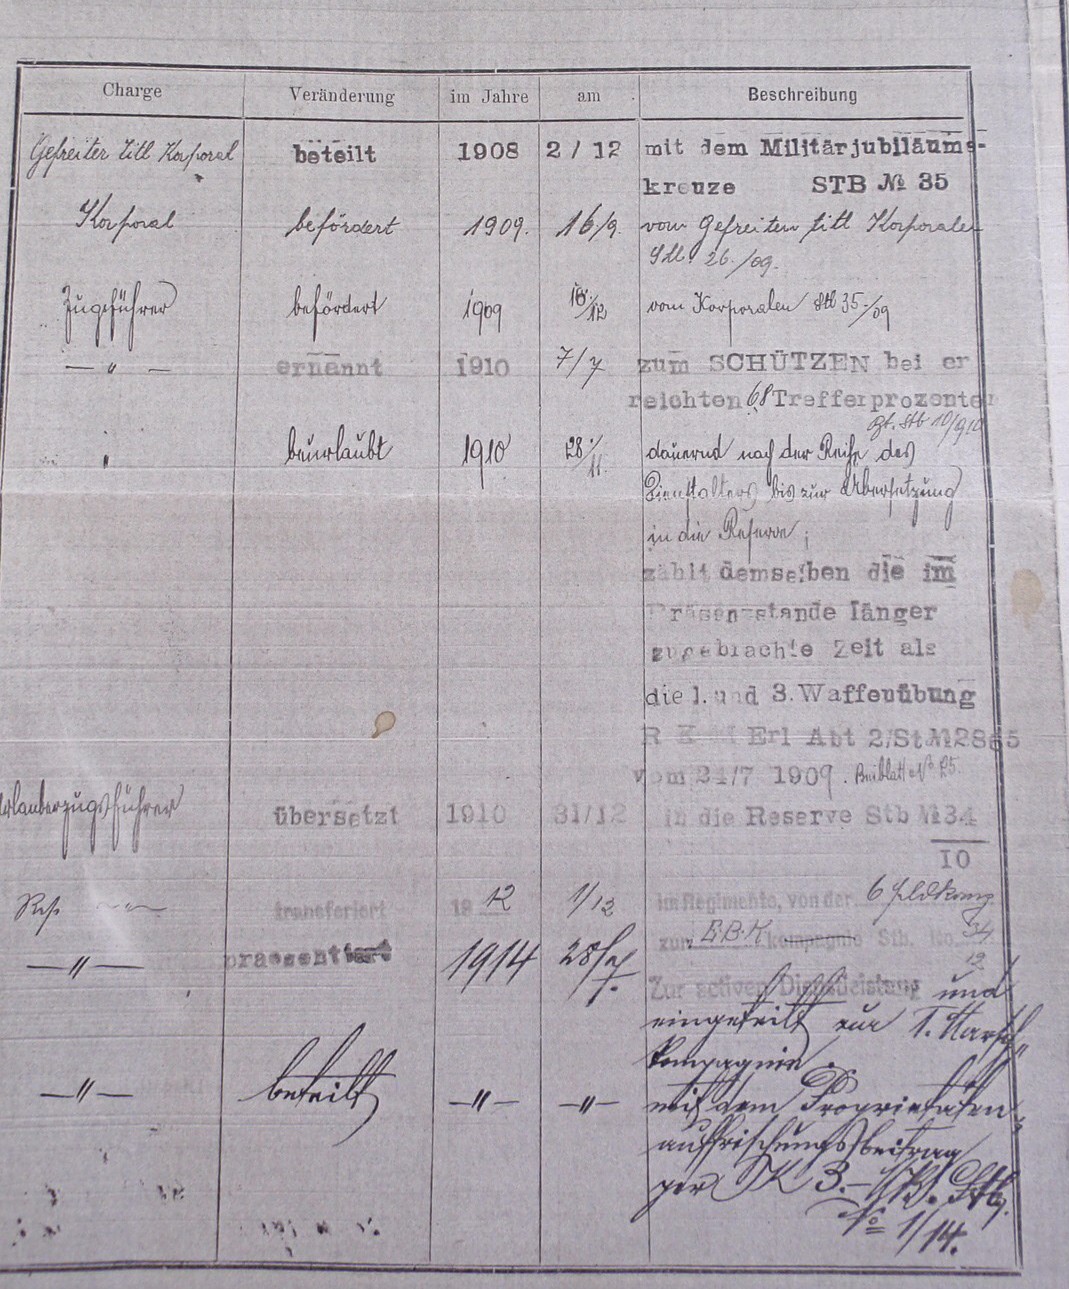 Charge Veränderung im Jahre am Beschreibung
Gefreiter titl Korporal beteilt 1908 2/12 mit dem Militärjubiläums-
kreuze STB № 35
Korporal befördert 1909. 16/9. vom Gefreiten titl Korporalen
26./09.
Zugsführer befördert 1909 16/12 vom Korporalen Stb 35/09
— " — ernannt 1910 7/7 zum SCHÜTZEN bei er
reichten 68 Trefferprozenten
Stb 10/910
" beurlaubt 1910 28./11. dauernd nach der Reihe des
Dienstalters bis zur Übersetzung
in die Reserve;
zählt demselben die im
Präsenzstande länger
zugebrachte Zeit als
die 1. und 3. Waffenübung
R K M Erl Abt 2/St № 2865
vom 24/7 1909. Beiblatt № 25
Urlauberzugsführer übersetzt 1910 31/12 in die Reserve Stb № 34
10
Res — " — transferiert 1912 1/12 im Regimente, von der 6 Feldkomp
zur E.B.K kompagnie Stb. No. 34
12
— " — praesentiert 1914 28/7. Zur activen Dienstleistung und
eingeteilt zur I. Marsch
kompagnie.
— " — beteilt — " — — " — mit dem Proprietäten
auffrischungsbeitrag
per K 3.— Stb.
No 1/14.